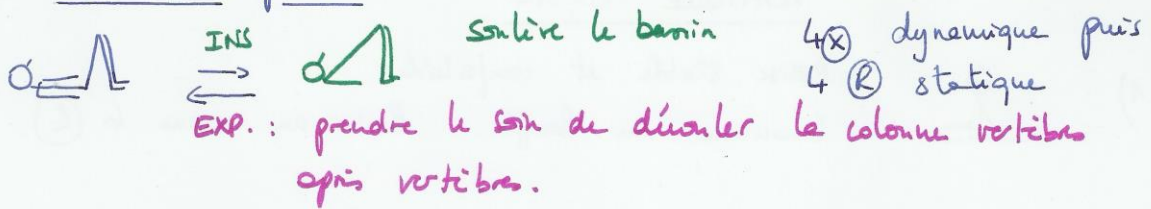 INS soulève le bassin 4 Ⓧ dynamique puis
4 Ⓡ statique
EXP. : prendre le soin de dérouler la colonne vertèbres
après vertèbres.